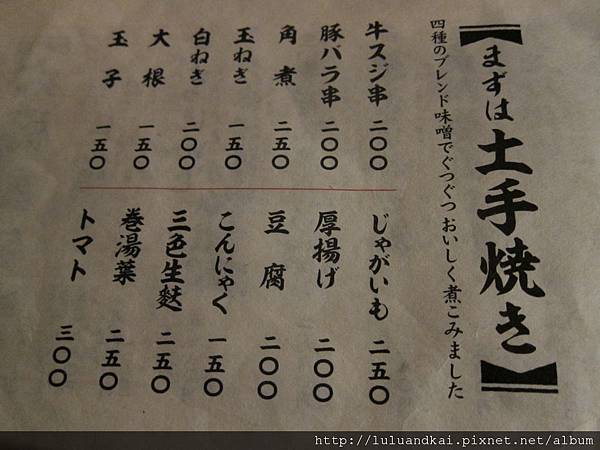 【まずは土手焼き】
四種のブレンド味噌でぐつぐつ おいしく煮こみました
牛スジ串 二〇〇
豚バラ串 二〇〇
角煮 二五〇
玉ねぎ 一五〇
白ねぎ 二〇〇
大根 一五〇
玉子 一五〇
じゃがいも 二五〇
厚揚げ 二〇〇
豆腐 二〇〇
こんにゃく 一五〇
三色生麩 二五〇
巻湯葉 二五〇
トマト 三〇〇
http://luluandkai.pixnet.net/album